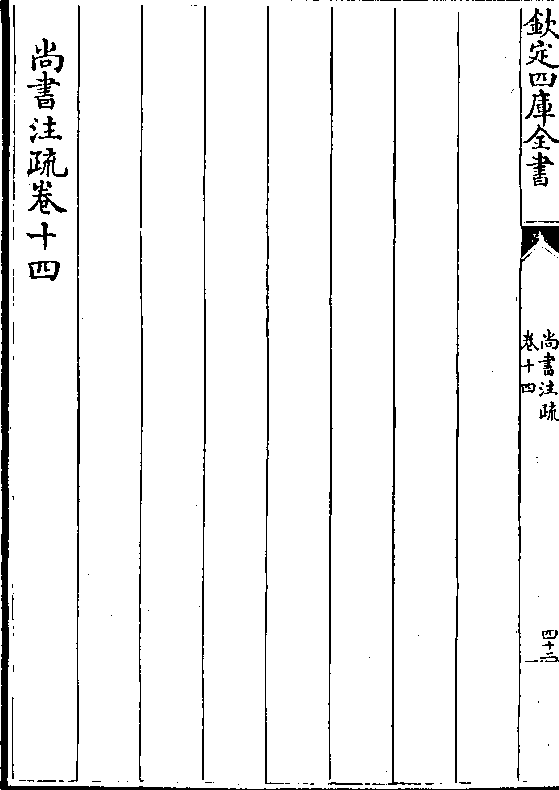 欽定四庫全書
尚書注疏
卷十四
四十二
尚書注疏卷十四